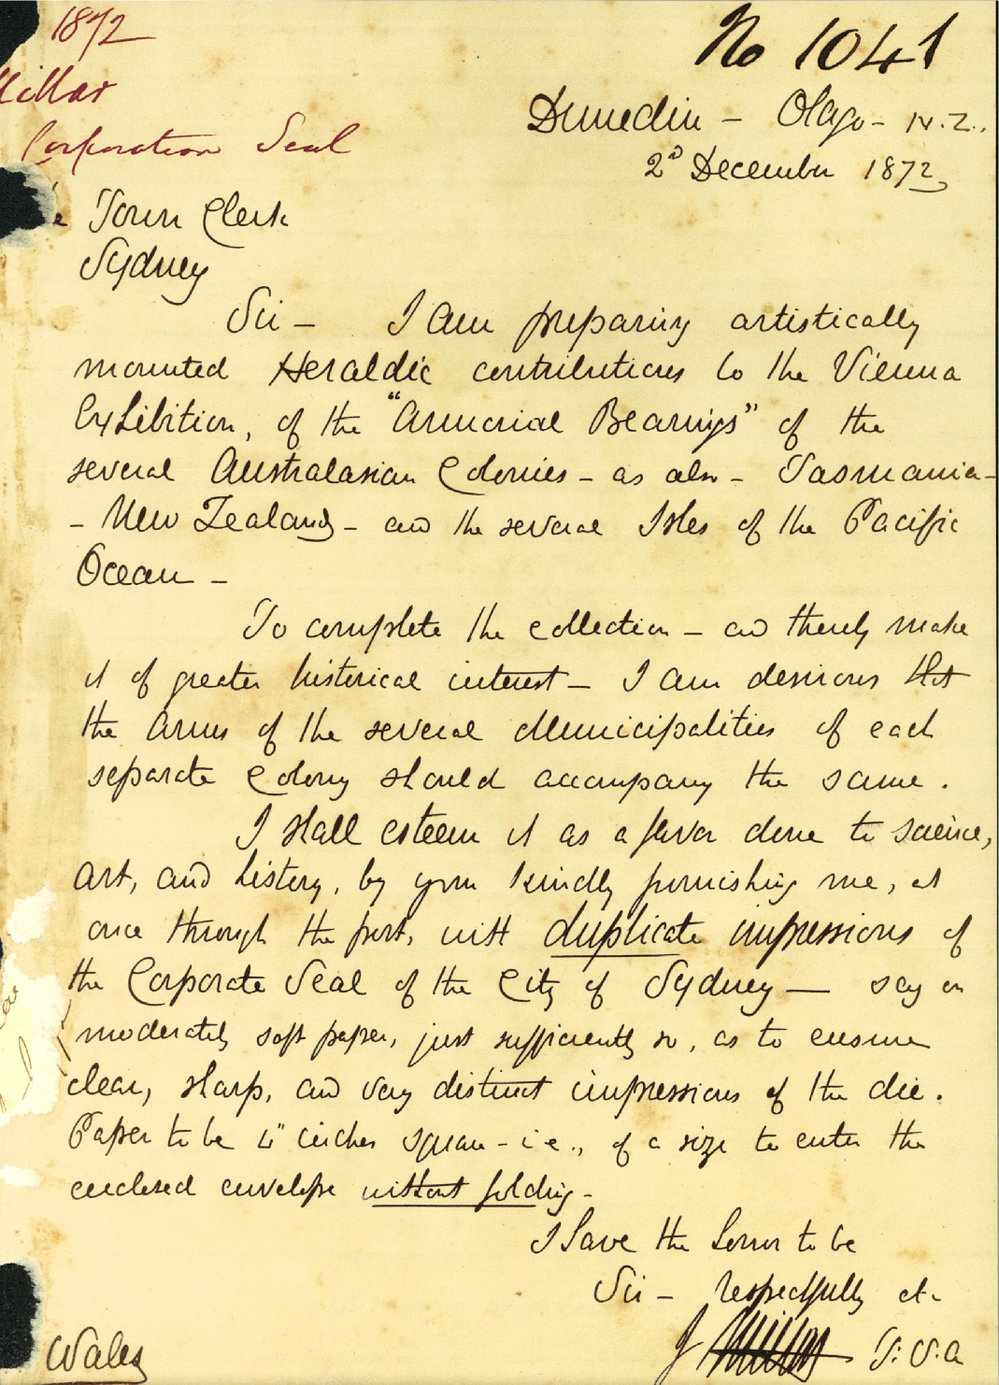 1872
Millar
Corporation Seal
No 1041
Dunedin - Otago - N.Z.
2d December 1872
Town Clerk
Sydney
Sir - I am preparing artistically
mounted Heraldic contributions to the Vienna
Exhibition, of the "Armorial Bearings" of the
several Australasian Colonies - as also - Tasmania -
- New Zealand - and the several Isles of the Pacific
Ocean -
To complete the collection - and thereby make
it of greater historical interest - I am desirous that
the Arms of the several Municipalities of each
separate Colony should accompany the same.
I shall esteem it as a favor done to science,
art, and history, by your kindly furnishing me, at
once through the post, with duplicate impressions of
the Corporate Seal of the City of Sydney - say on
moderately soft paper, just sufficiently so, as to ensure
clear, sharp, and very distinct impressions of the die.
Paper to be 4" inches square - i.e., of a size to enter the
enclosed envelope without folding -
I have the honor to be
Sir - respectfully etc
J Millar F.S.A
Wales